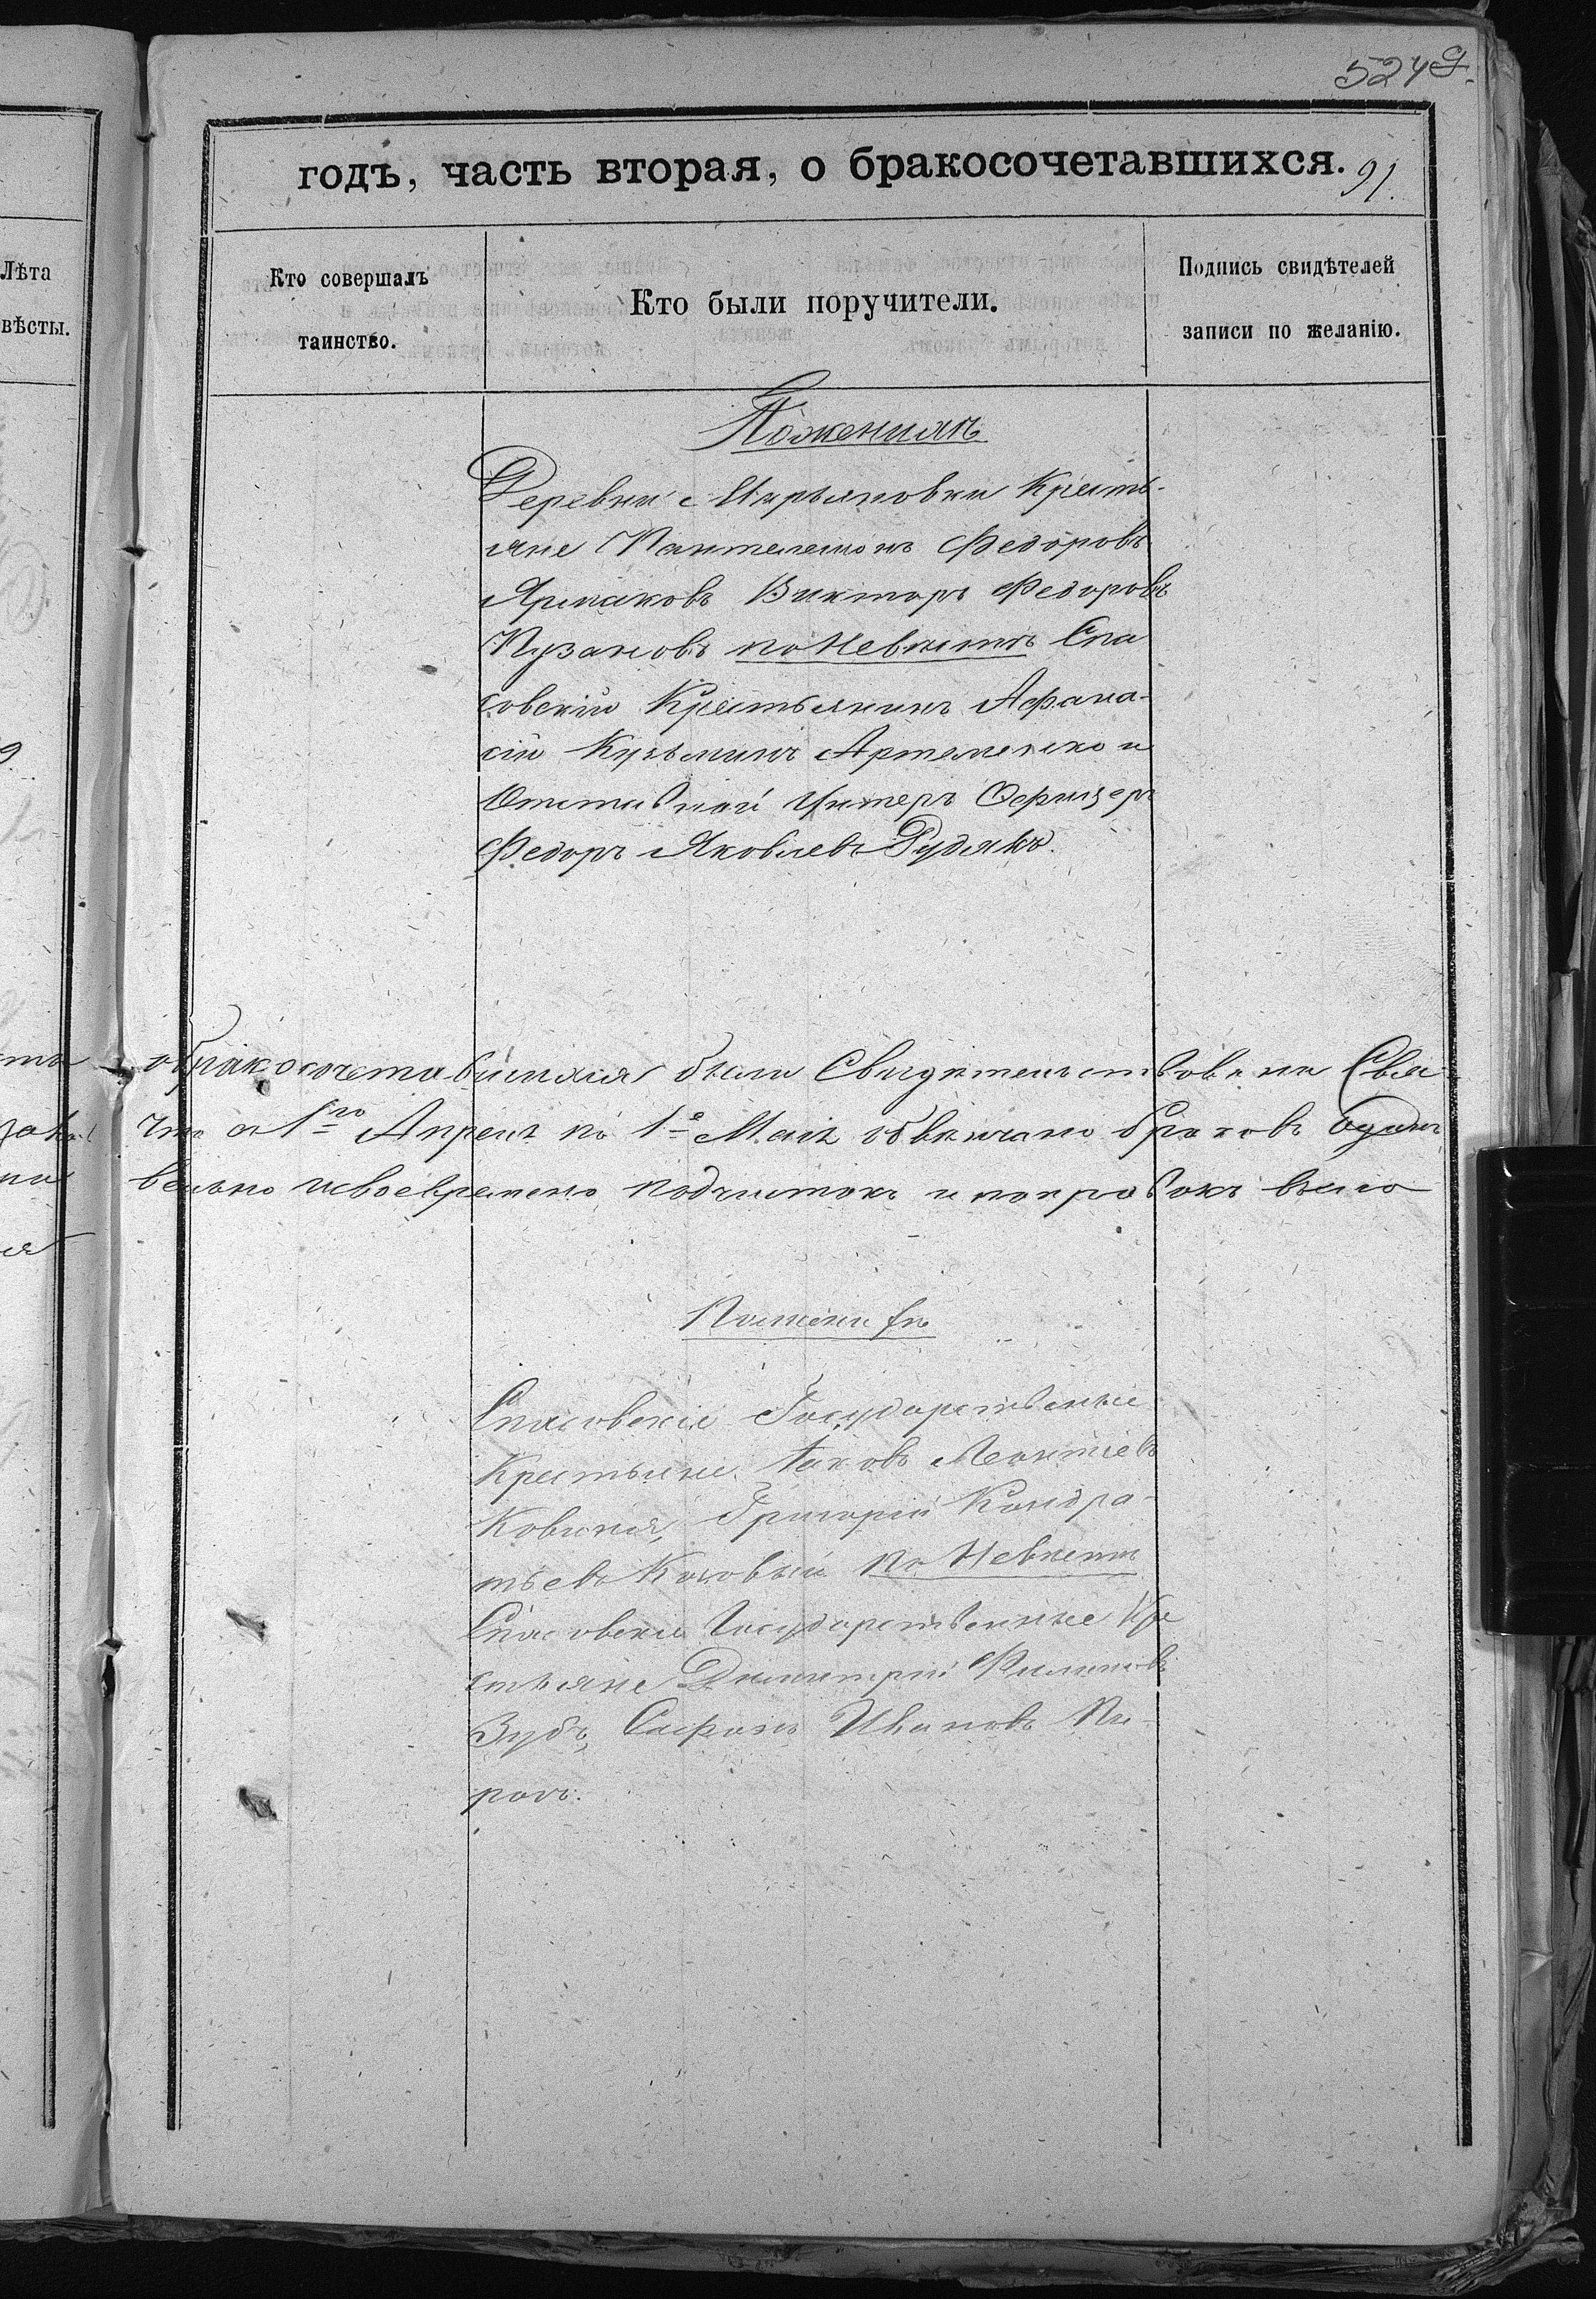 524
годъ, часть вторая, о бракосочетавшихся.
91.
Лѣта
вѣсты.
Кто совершалъ
таинство.
Кто были поручители.
Подпись свидѣтелей
записи по желанію.
По женихѣ
Деревни Марьяновки Кресть-
яне Пантелеимонъ Федоровъ
Ярмаковъ Викторъ Федоровъ
Пузановъ по Невѣстѣ Спа
совскій Крестьянинъ Афана-
сій Кузьминъ Артеменко и
Отставной Унтеръ Офицеръ
Федоръ Яковлевъ Рудякъ.
о бракосочетавшихся были Свидѣтельствованы Свя
что съ 1го Апреля по 1е Мая обвѣнчано браковъ одинъ
вельно и своевременно подчистокъ и поправокъ въ
По женихѣ
Спасовскіе Государственные
Крестьяне Іаковъ Леонтіевъ
Григорій Кондра-
тьевъ по Невѣстѣ
Спасовскіе Государственные Кре
стьяне Димитрій Филиповъ
Зубъ, Сафонъ Ивановъ Пи-
рогъ.